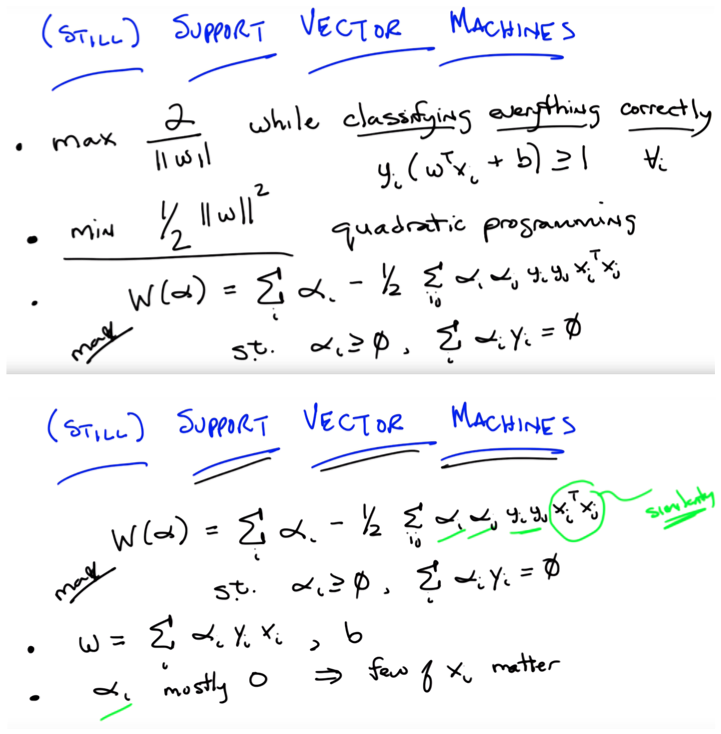 (STILL) SUPPORT VECTOR MACHINES
• max 2/||w|| while classifying everything correctly
yᵢ(wᵀxᵢ + b) ≥ 1 ∀ᵢ
• min 1/2 ||w||² quadratic programming
• W(α) = Σᵢ αᵢ - 1/2 Σᵢⱼ αᵢ αⱼ yᵢ yⱼ xᵢᵀxⱼ
max s.t. αᵢ ≥ ∅, Σᵢ αᵢ yᵢ = ∅
(STILL) SUPPORT VECTOR MACHINES
W(α) = Σᵢ αᵢ - 1/2 Σᵢⱼ αᵢ αⱼ yᵢ yⱼ xᵢᵀxⱼ similarity
max s.t. αᵢ ≥ ∅, Σᵢ αᵢ yᵢ = ∅
• w = Σᵢ αᵢ yᵢ xᵢ, b
• αᵢ mostly 0 ⇒ few of xᵢ matter